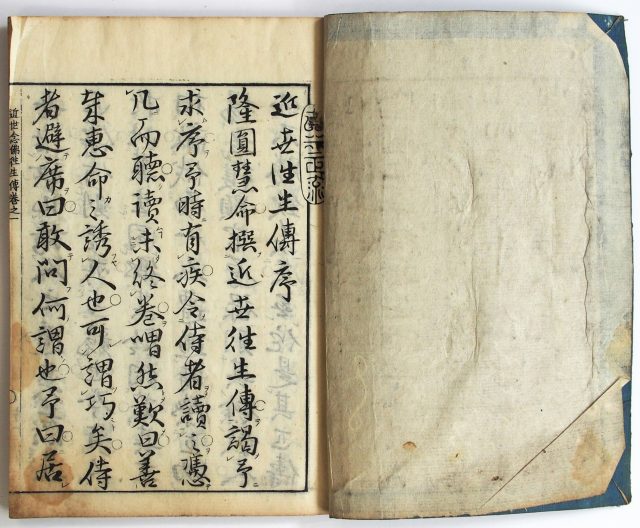 近世往生傳序
隆圓慧命撰近世往生傳謁予
求序予時有疾令侍者讀之憑
几而聽讀未終卷喟然歎曰善
矣惠命之誘人也可謂巧矣侍
者避席曰敢問何謂也予曰居
近世念佛往生傳卷之一